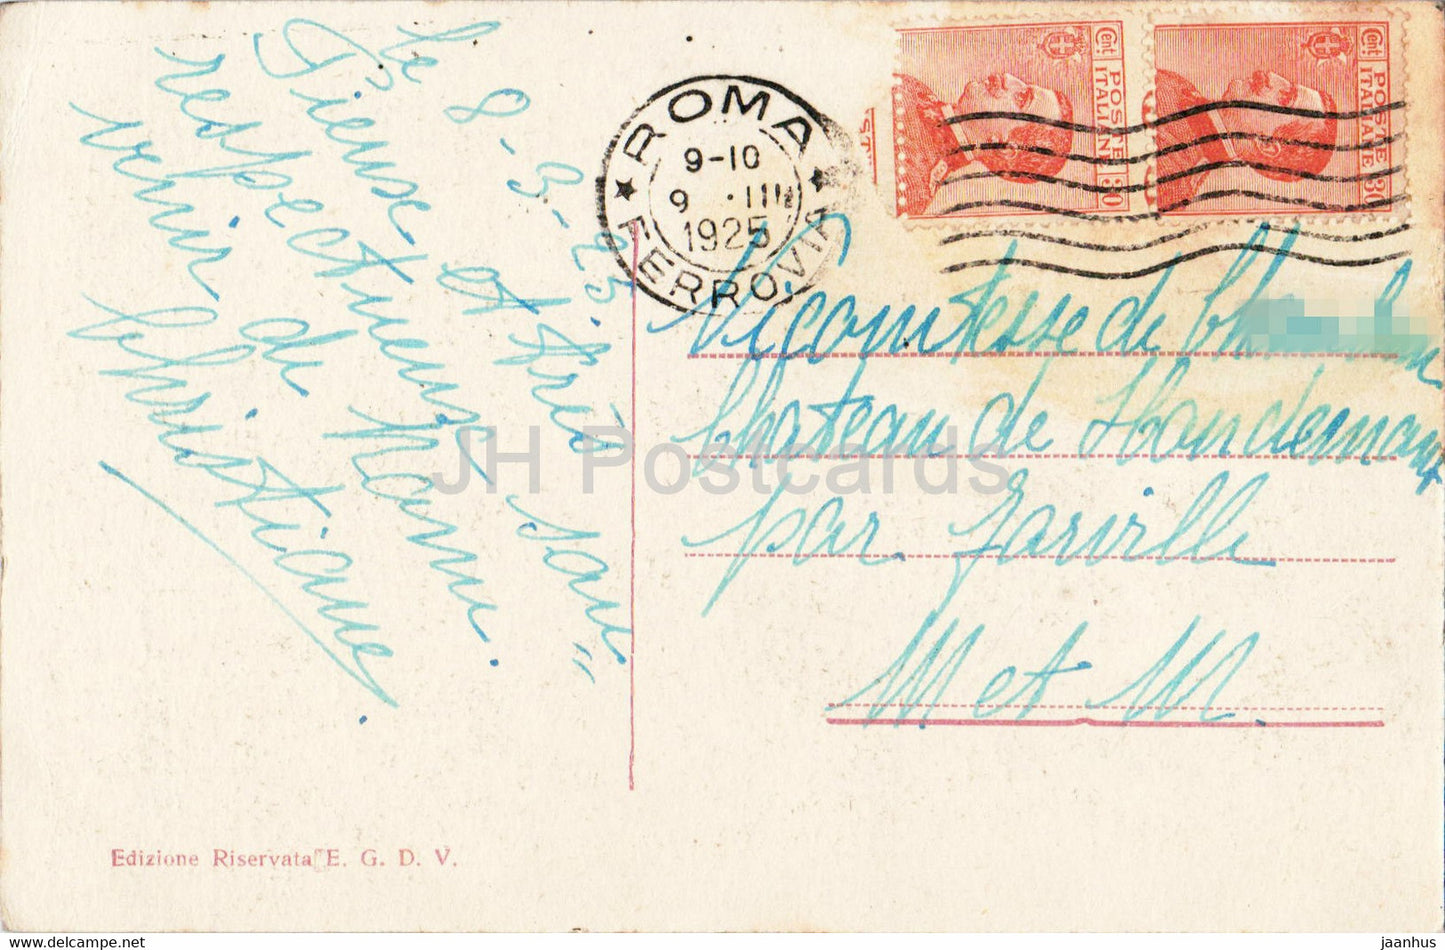 le 8-3-25.
Pieuse et très
respectueux sou=
venir de Rome.
Christiane.
ROMA
9-10
9 · III
1925
FERROVIA
Cent. 30
POSTE ITALIANE
Cent. 30
POSTE ITALIANE
Vicomtesse de
Chateau de Handemont
par Jarville
M et M.
JH Postcards
Edizione Riservata E. G. D. V.
www.delcampe.net
jaanhus